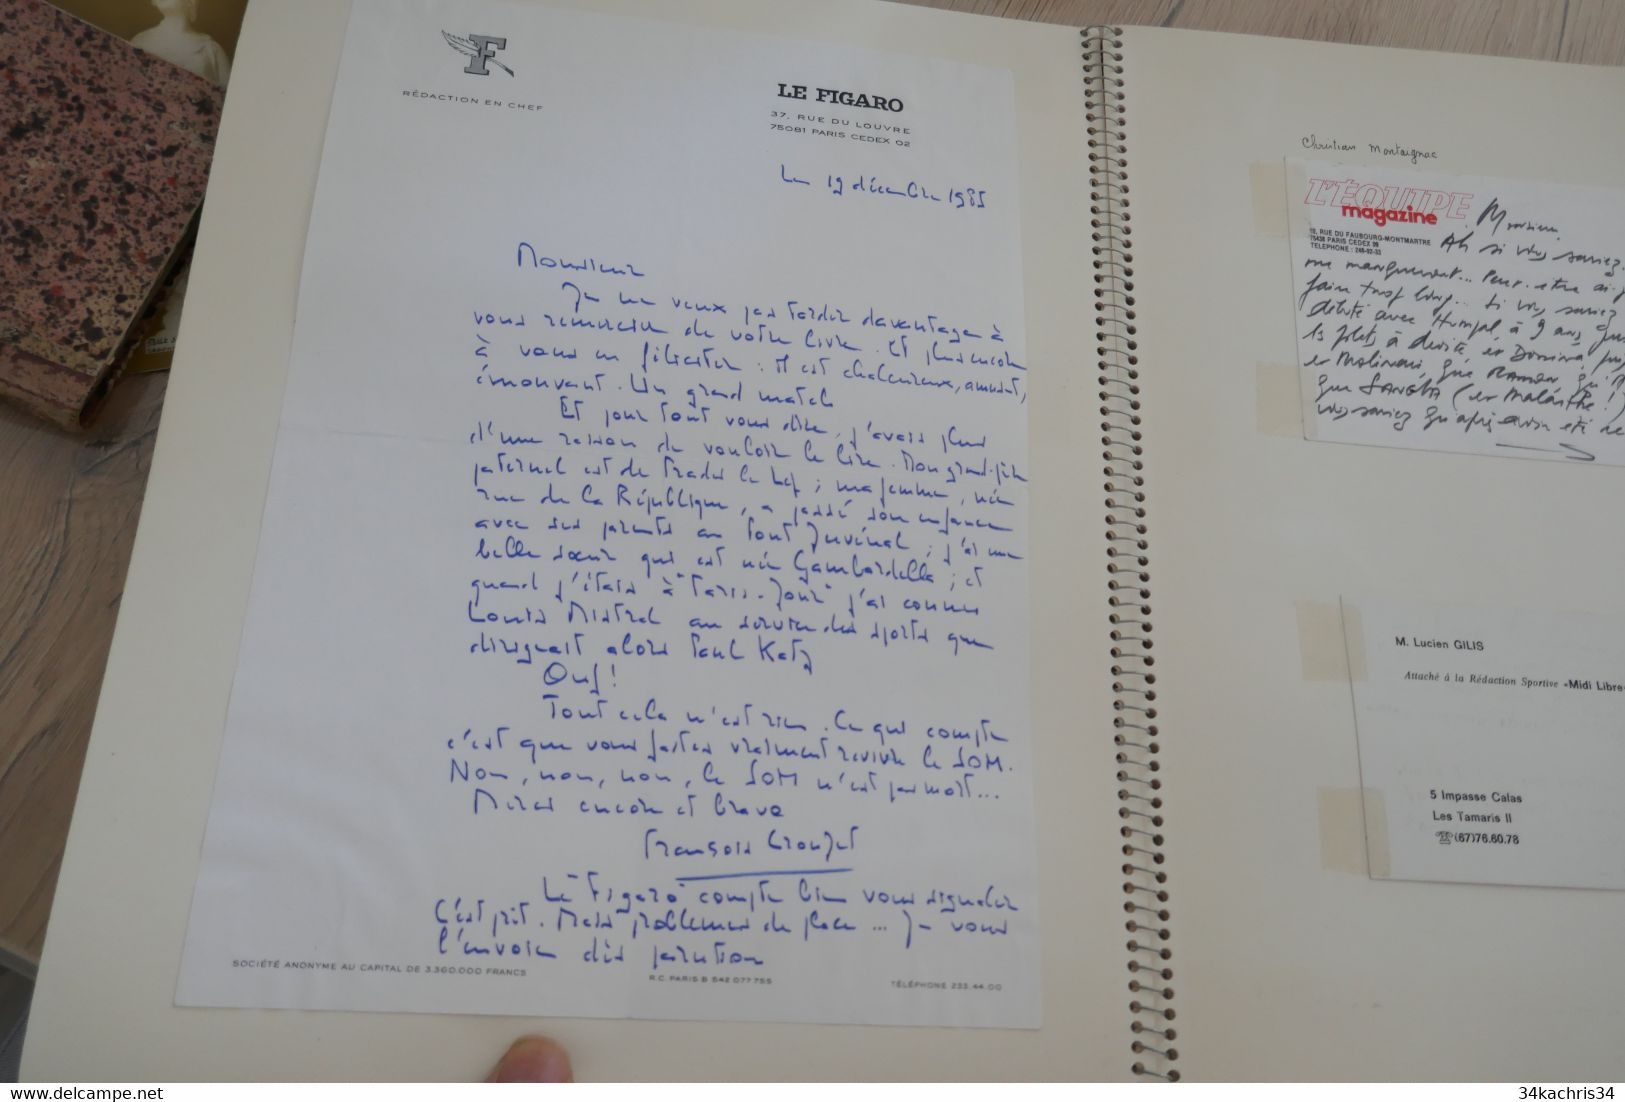 F
RÉDACTION EN CHEF
LE FIGARO
37, RUE DU LOUVRE
75081 PARIS CEDEX 02
Le 19 décembre 1985
Monsieur
Je ne veux pas tarder davantage à
vous remercier de votre livre. Et plus encore
à vous en féliciter : il est chaleureux, amusant,
émouvant. Un grand match
Et pour tout vous dire, j'avais plus
d'une raison de vouloir le lire. Mon grand-père
paternel est de Prades le Lez ; ma femme, née
rue de la République, a passé son enfance
avec ses parents au Pont Juvénal ; j'ai une
belle sœur qui est née Gambardella ; et
quand j'étais à "Paris-Jour" j'ai connu
Louis Mistral au service des sports que
dirigeait alors Paul Katz
Ouf !
Tout cela n'est rien. Ce qui compte
c'est que vous faites vraiment revivre le SOM.
Non, non, non, le SOM n'est pas mort...
Merci encore et bravo
François
Le "Figaro" compte bien vous signaler
C'est prêt. Mais problèmes de place ... Je vous
l'envoie dès parution
SOCIÉTÉ ANONYME AU CAPITAL DE 3.360.000 FRANCS
R.C. PARIS B 542 077 755
TÉLÉPHONE 233.44.00
Christian Montaignac
L'ÉQUIPE
magazine
10, RUE DU FAUBOURG-MONTMARTRE
75438 PARIS CEDEX 09
TELEPHONE : 246-92-33
Monsieur
Ah si vous saviez
me manquent... Peut-être ai-j
faire trop long... Si vous saviez
débuté avec à 9 ans, que
15 à droite, et Domina
et Molinari, que RAMON qu'
que SANGHA (et Malante !)
vous saviez qu'après avoir été
M. Lucien GILIS
Attaché à la Rédaction Sportive «Midi Libre»
5 Impasse Calas
Les Tamaris II
☎ (67)76.60.78
34kachris34